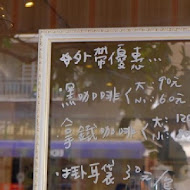 外帶優惠...
·黑咖啡 大:90元
小:60元
·拿鐵咖啡 大:12
小:
·掛耳袋 30元